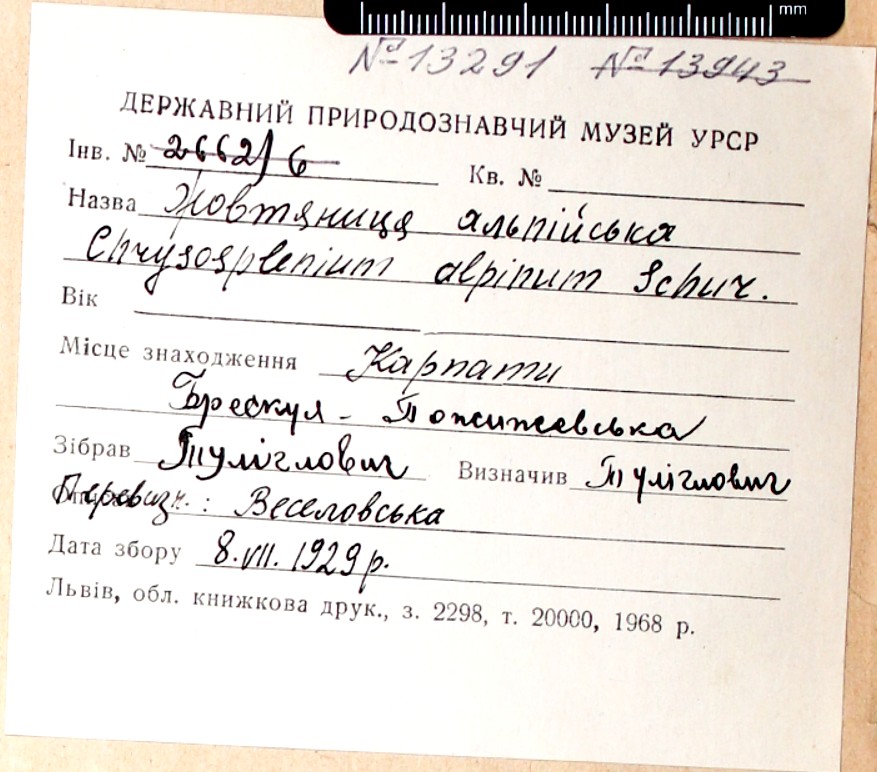 mm
№ 13291 № 13943
ДЕРЖАВНИЙ ПРИРОДОЗНАВЧИЙ МУЗЕЙ УРСР
Інв. № 2662/6 Кв. №
Назва Жовтяниця альпійська
Chrysosplenium alpinum Schur.
Вік
Місце знаходження Карпати
Брескул - Пожижевська
Зібрав Туліглович Визначив Туліглович
Перевизн.: Веселовська
Дата збору 8.VII.1929 р.
Львів, обл. книжкова друк., з. 2298, т. 20000, 1968 р.